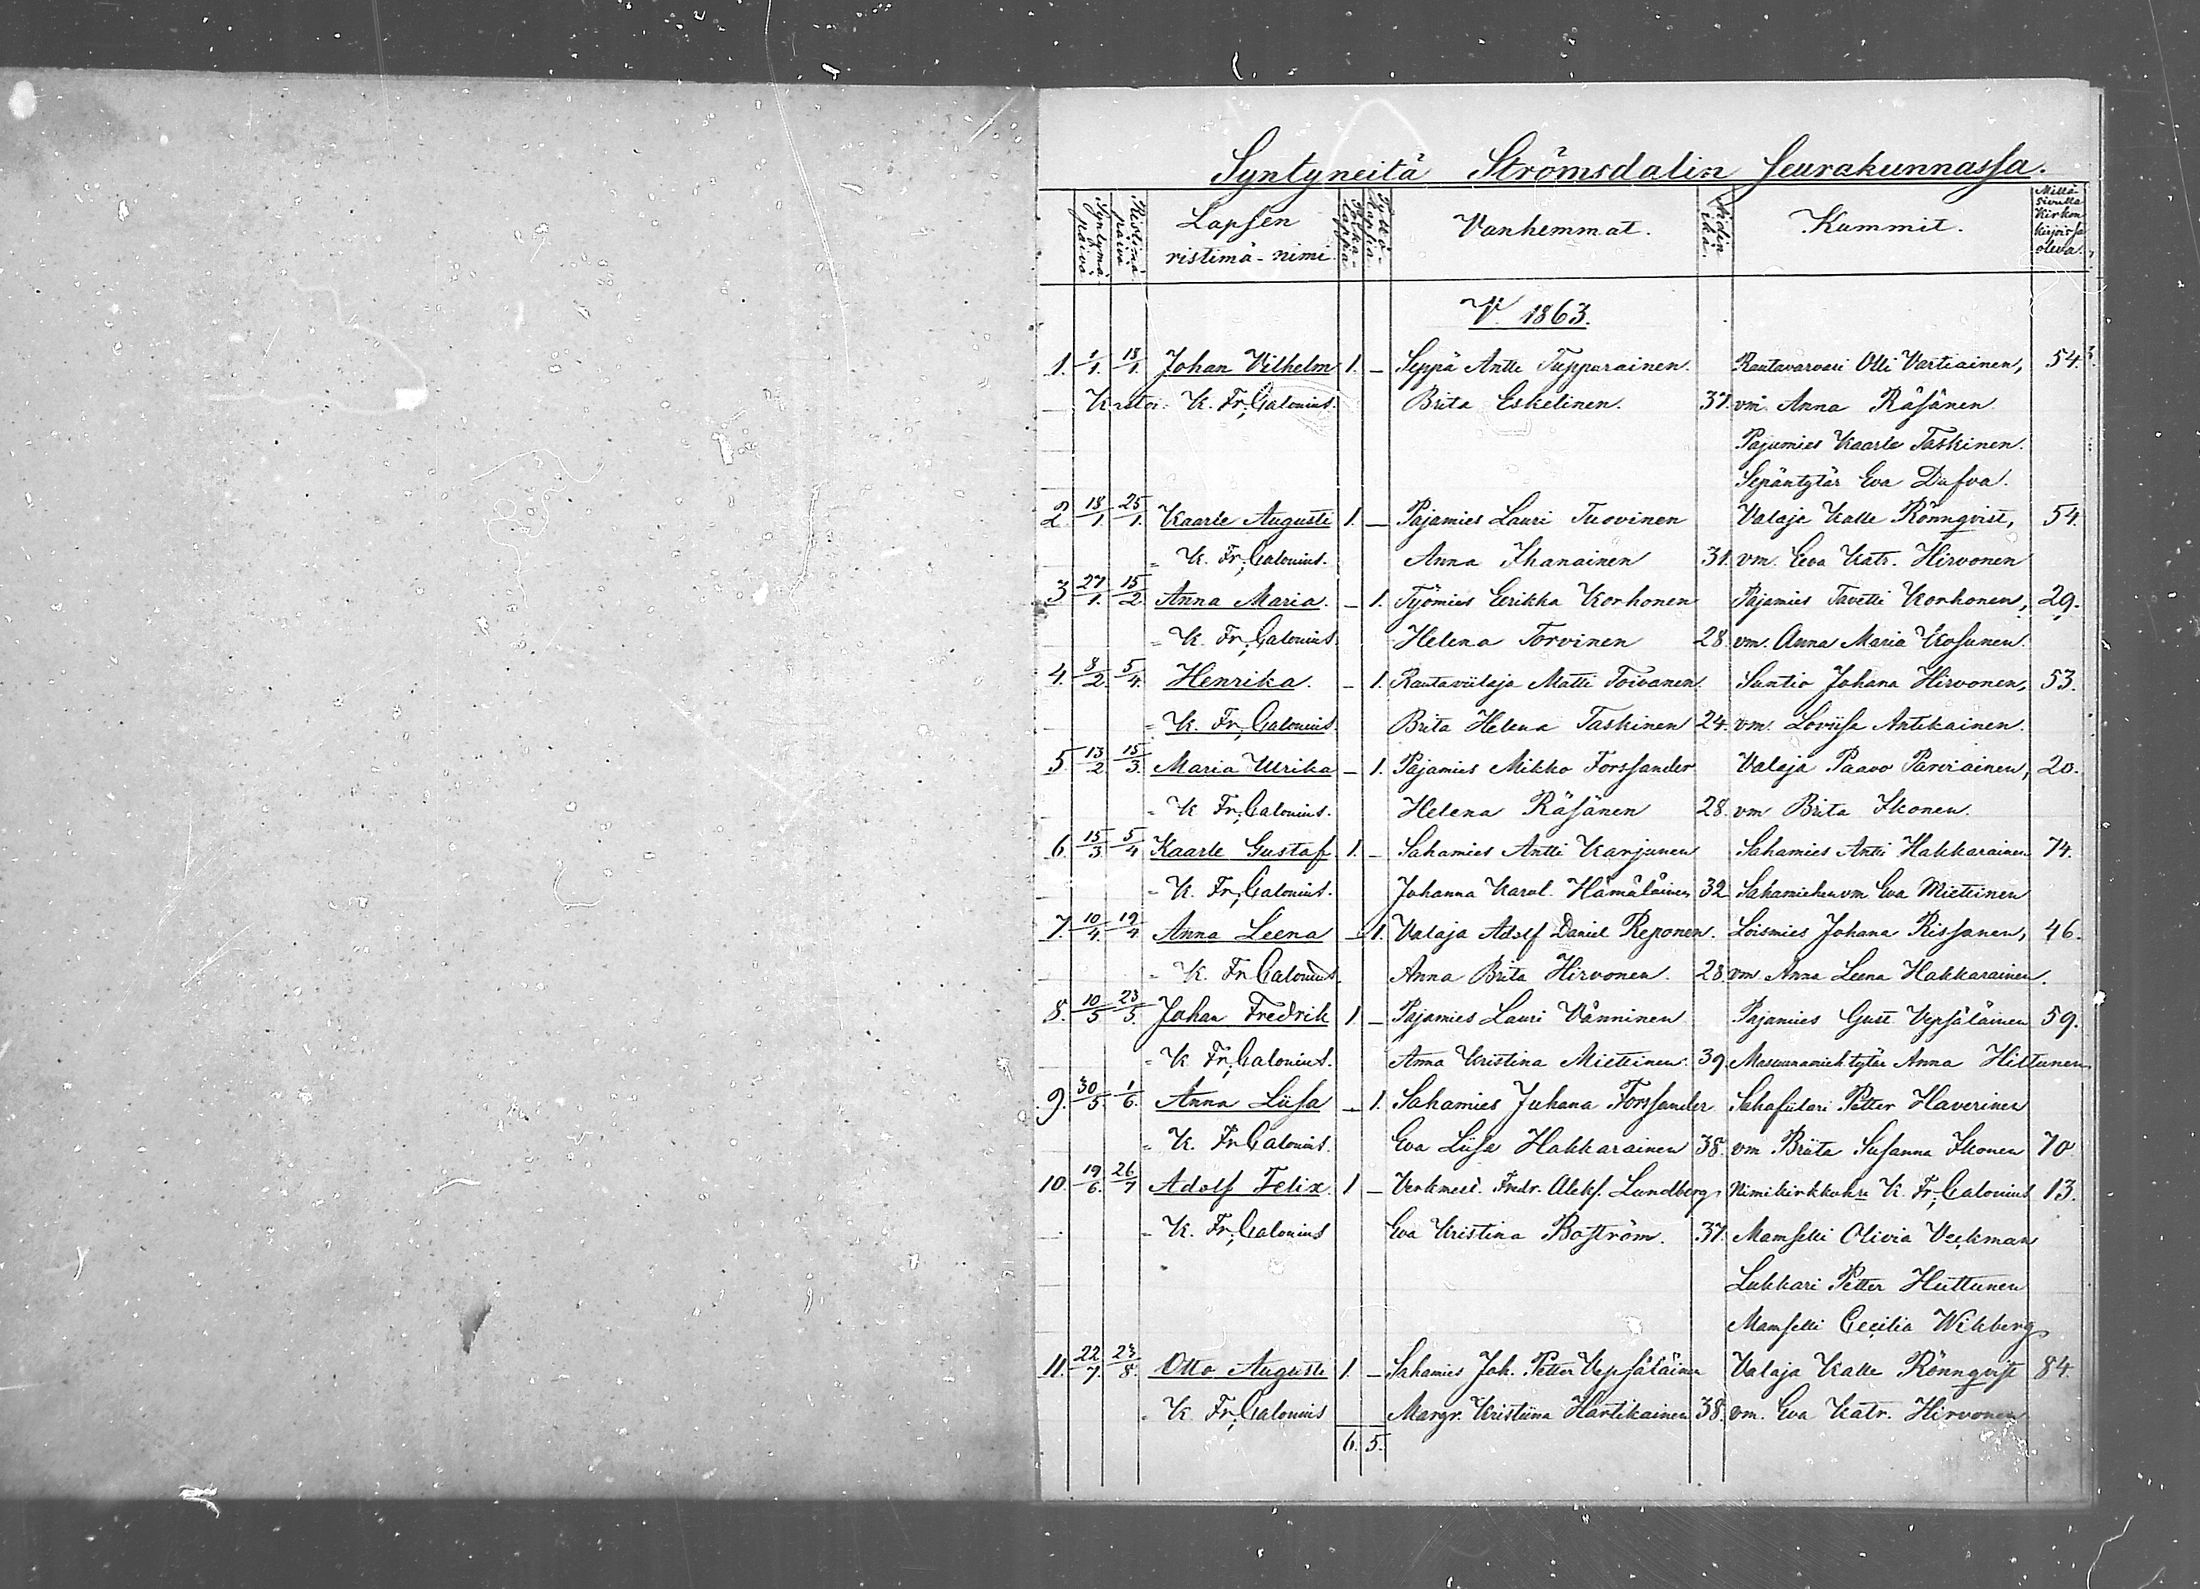 Syntyneitä Strömsdalin Seurakunnassa.
Syntymä päivä. Ristimä päivä Lapsen ristimä-nimi. Poika-lapsia. Tyttö-lapsia. Vanhemmat. Äidin ikä. Kummit. Millä sivulla Kirkon kirjoissa oleva.
V. 1863.
1. 1/1. 18/1. Johan Vilhelm 1. – Seppä Antti Tuppurainen. Rautavarvari Olli Vartiainen, 54.
Kastoi. K. Fr. Calonius. Brita Eskelinen. 37. vm. Anna Räsänen
Pajumies Kaarle Taskinen.
Sepäntytär Eva Dufva.
2. 18/1 25/1. Kaarle Augusti 1. – Pajamies Lauri Tuovinen Valaja Kalle Rönnqvist, 54.
" K. Fr. Calonius. Anna Ihanainen 31. vm. Eeva Katr. Hirvonen
3 27/1. 15/2. Anna Maria. – 1. Työmies Eerikka Korhonen Pajamies Tavetti Korhonen, 29.
" K. Fr. Calonius. Helena Torvinen 28. vm. Anna Maria Kosunen.
4. 8/2. 5/4. Henrika. – 1. Rautaviilaja Matti Toivanen. Suntio Johana Hirvonen, 53.
" K. Fr. Calonius. Brita Helena Taskinen 24. vm. Loviisa Antikainen.
5. 13/2. 15/3. Maria Ulrika – 1. Pajamies Mikko Forssander Valaja Paavo Parviainen, 20.
" K Fr. Calonius. Helena Räsänen 28. vm Brita Ikonen.
6. 15/3. 5/4 Kaarle Gustaf 1. – Sahamies Antti Karjunen Sahamies Antti Hakkarainen 74.
" K. Fr. Calonius. Johanna Karol. Hämäläinen 32 Sahamiehen vm Eva Miettinen
7. 10/4. 19/4 Anna Leena – 1. Valaja Adolf Daniel Reponen. Loismies Johana Rissanen, 46.
" K. Fr. Calonius. Anna Brita Hirvonen. 28. vm. Anna Leena Hakkarainen.
8. 10/5 23/5. Johan Fredrik 1. – Pajamies Lauri Vänninen Pajamies Gust Vepsäläinen 59.
" K Fr. Calonius. Anna Kristina Miettinen. 39. Masuunamieh. tytär Anna Hiltunen
9. 30/5. 1/6. Anna Liisa – 1. Sahamies Juhana Forssander Petter Haverinen
" K. Fr. Calonius. Eva Liisa Hakkarainen 38. vm Brita Susanna Ikonen 70
10. 19/6. 26/7 Adolf Felix. 1 – Verkmest. Fredr. Aleks. Lundberg, Nimikirkkohra K. Fr. Calonius 13.
" K. Fr. Calonius Eva Kristina Boström. 37. Mamselli Olivia Veckman
Lukkari Petter Huttunen
Mamselli Cecilia Wikberg
11. 22/7. 23/8. Otto Augusti 1. – Sahamies Joh. Petter Vepsäläinen Valaja Kalle Rönnqvist 84.
" K. Fr. Calonius Margr. Kristiina Hartikainen 38. vm. Eva Katr. Hirvonen
6. 5.